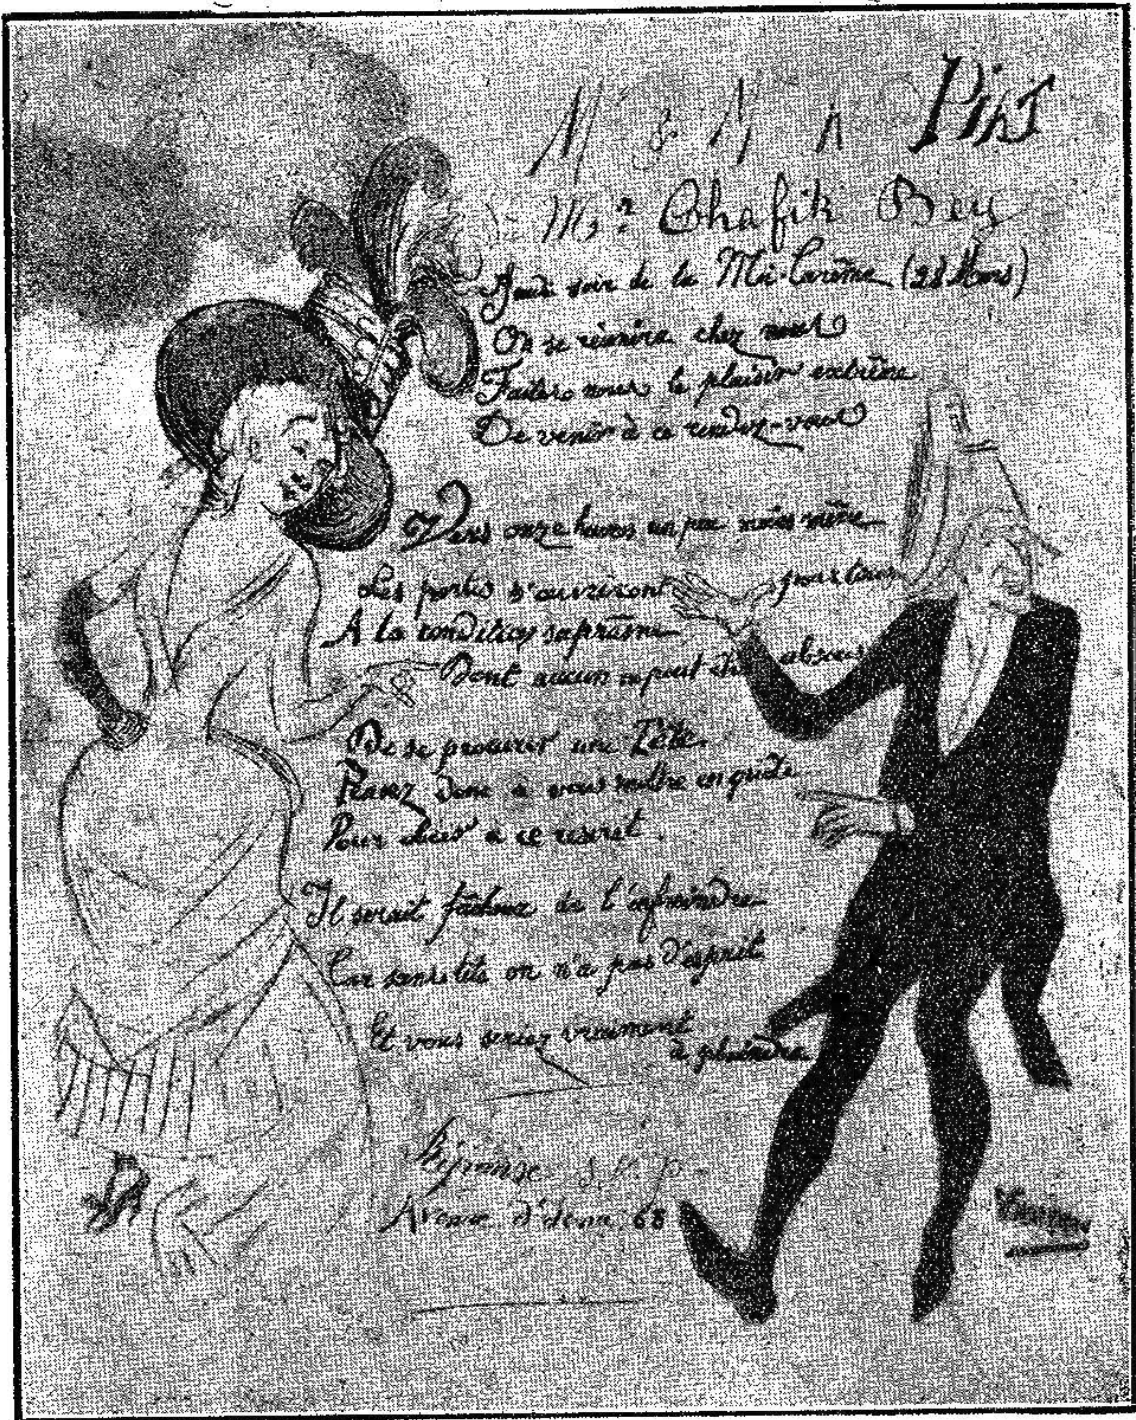 M & M n Piht
de Mr. Chafik Bey
Jeudi soir de la Mi-Carême (28 Mars)
On se réunira chez nous
Faites nous le plaisir extrême
De venir à ce rendez-vous
Vers onze heures un peu moins même
Les portes s'ouvriront pour tous
A la condition suprême
Dont aucun ne peut être absous
De se procurer une Tête.
Pensez donc à vous mettre en quête
Pour obéir à ce rescrit.
Il serait fâcheux de l'enfreindre
Car sans tête on n'a pas d'esprit
Et vous seriez vraiment
à plaindre
Réponse S.V.P.
Avenue d'Iéna, 68